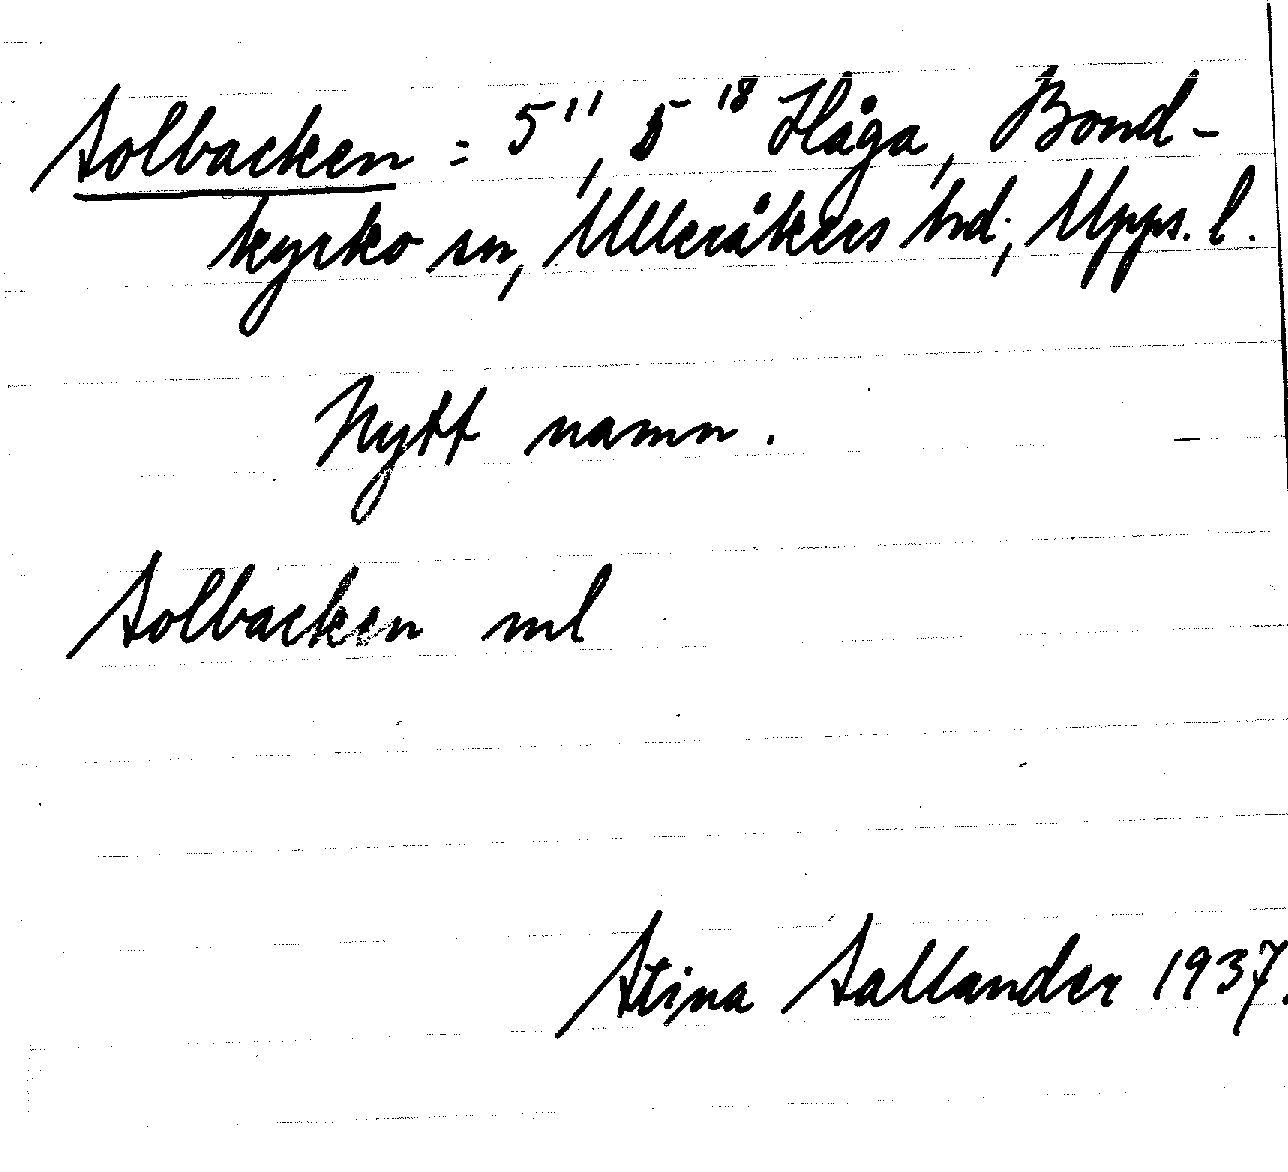 Solbacken = 5¹¹, 5¹⁸ Håga, Bond-
kyrko sn, Ulleråkers hd; Upps. l.
Nytt namn.
Solbacken ml
Stina Sallander 1937.